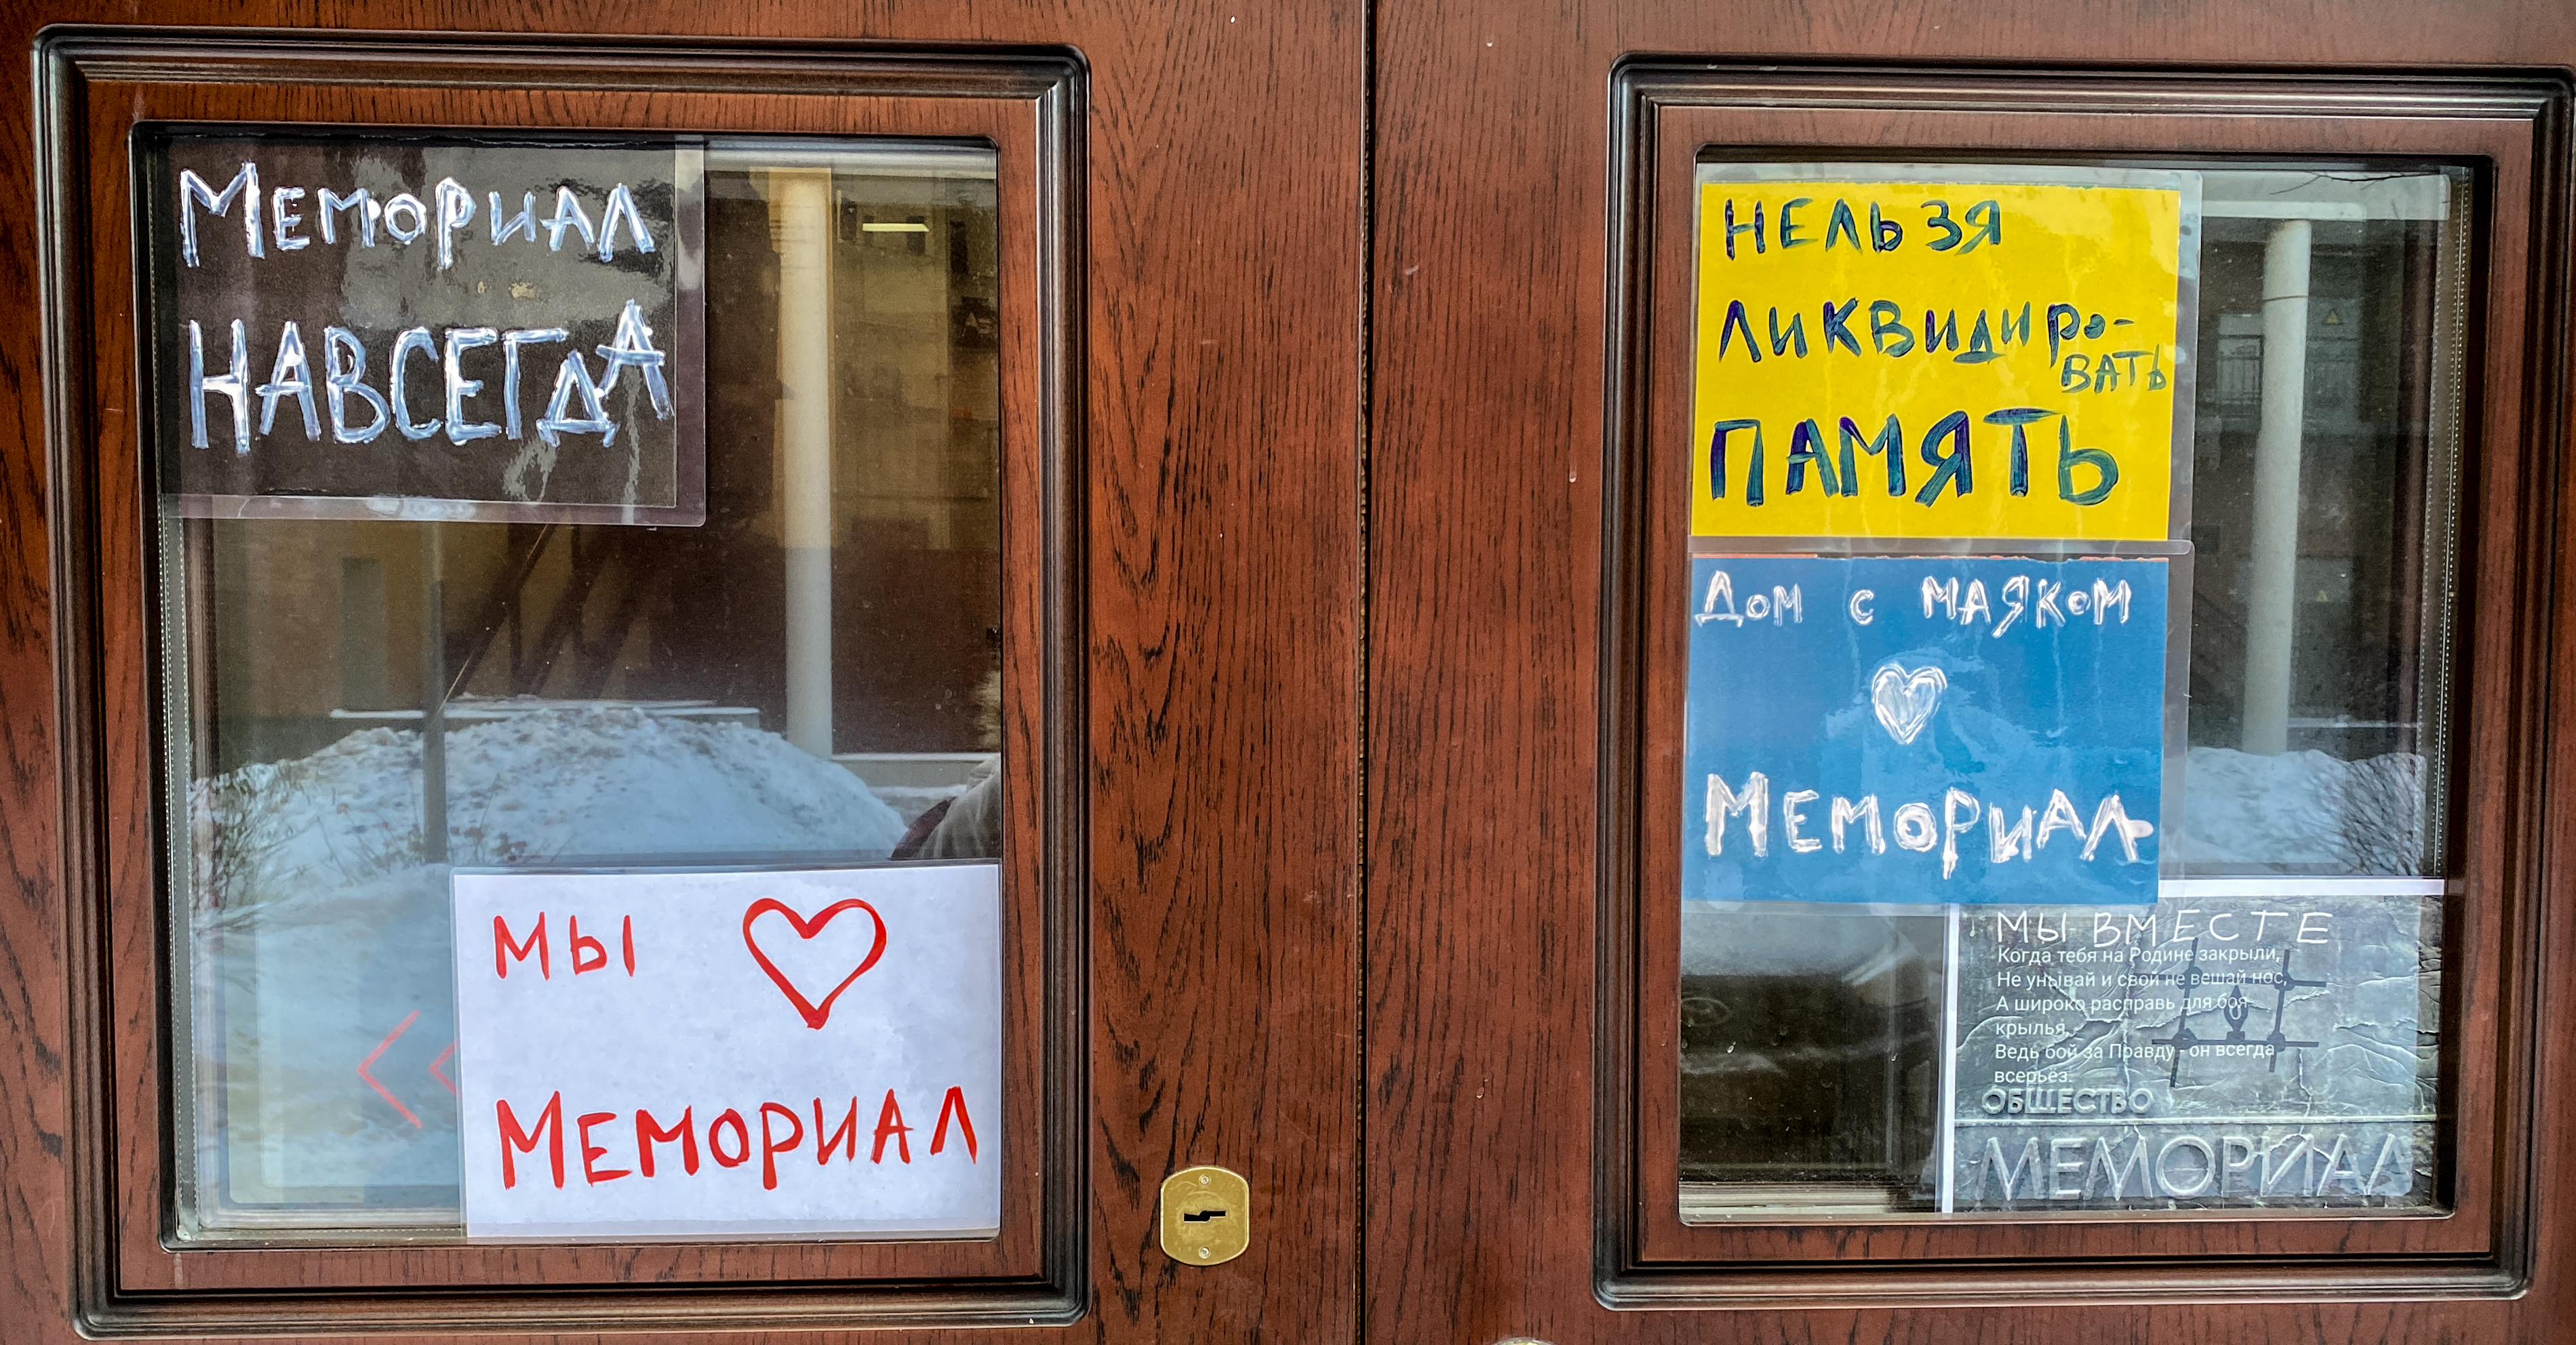 МЕМОРИАЛ
НАВСЕГДА
МЫ ♡
МЕМОРИАЛ
НЕЛЬЗЯ
ЛИКВИДИРО-
ВАТЬ
ПАМЯТЬ
ДОМ С МАЯКОМ
♡
МЕМОРИАЛ
МЫ ВМЕСТЕ
Когда тебя на Родине закрыли,
Не унывай и свой не вешай нос,
А широко расправь для боя
крылья,
Ведь бой за Правду - он всегда
всерьёз.
ОБЩЕСТВО
МЕМОРИАЛ